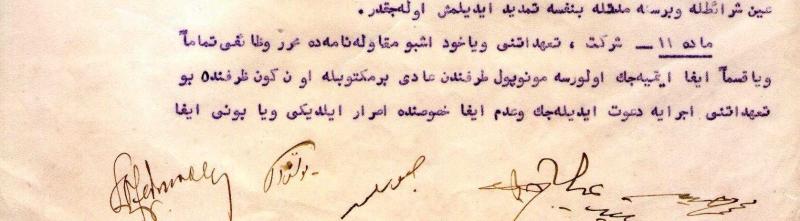 عين شرائطله وبرسنه مدتله بنفسه تمديد ايديلمش اوله‌جقدر.
ماده ١١ ــ شركت ، تعهداتنى وياخود اشبو مقاوله‌نامه‌ده محرر وظائفى تماماً
وياقسماً ايفا ايتميه‌جك اولورسه مونوپول طرفندن عادى برمكتوبله اون كون ظرفنده بو
تعهداتنى اجرايه دعوت ايديله‌جك وعدم ايفا خصوصنده اصرار ايلديكى ويا بونى ايفا